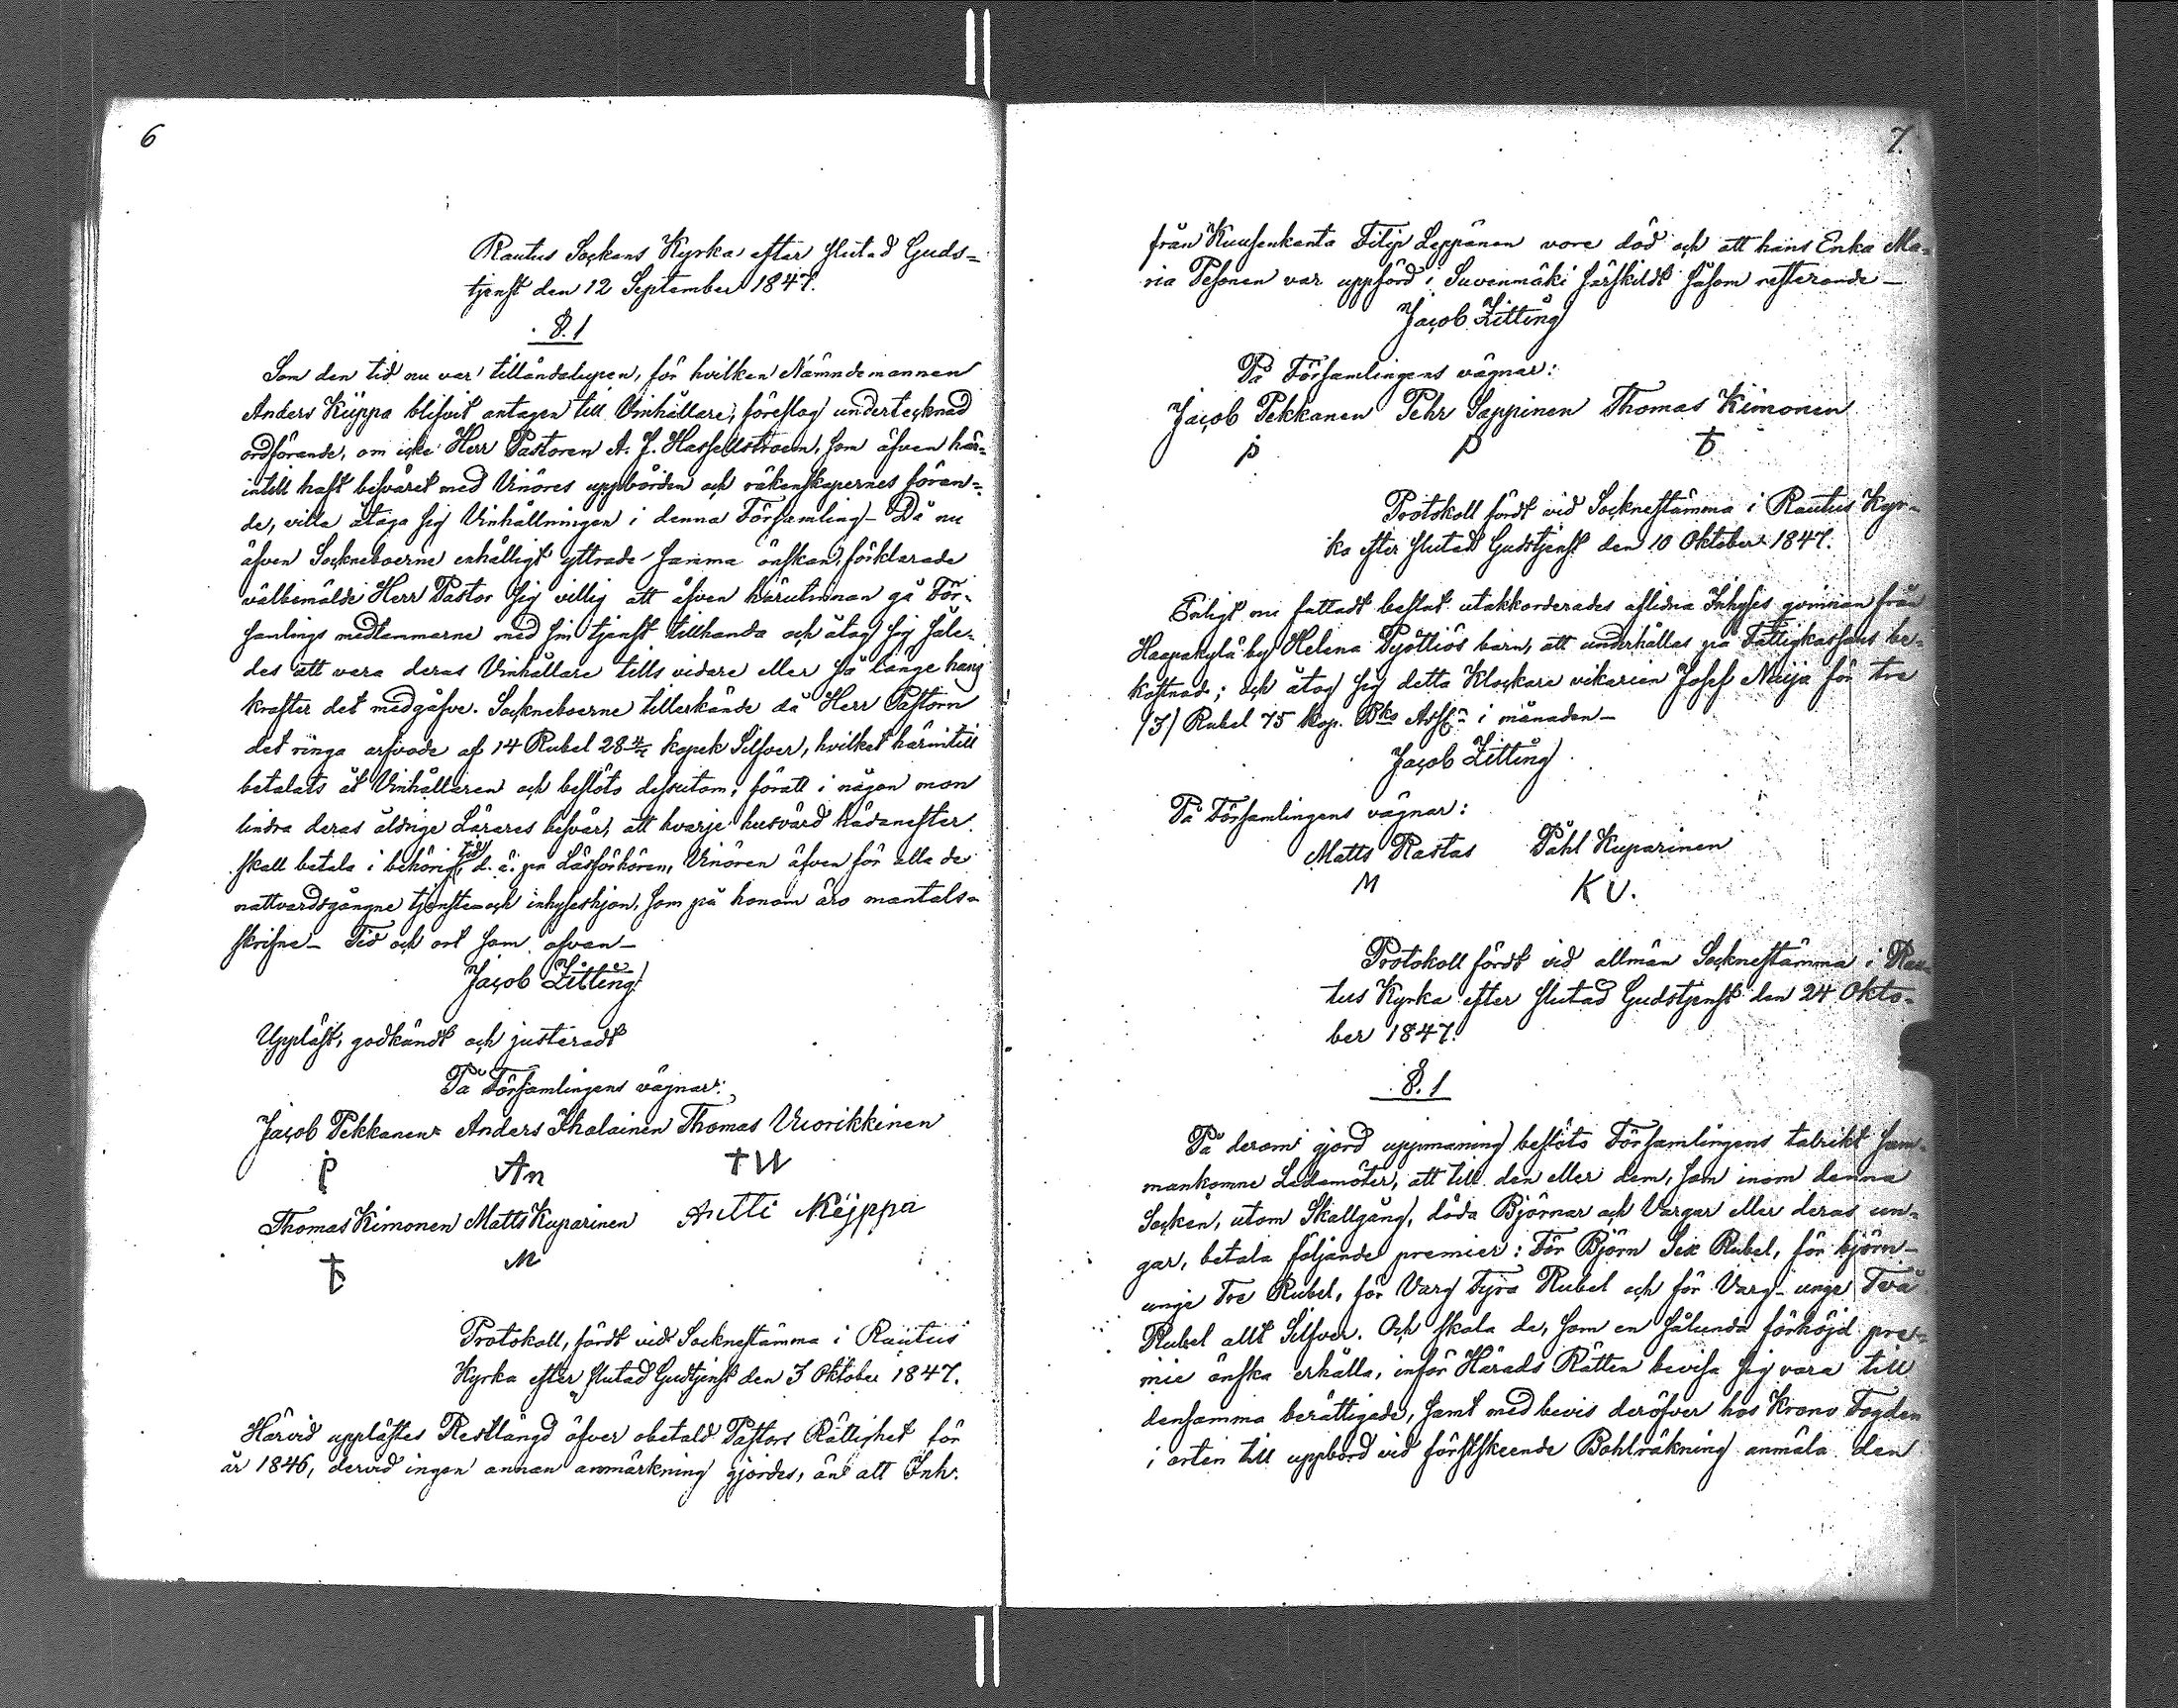 6
Rautus Sockens Kyrka efter slutad Guds=
tjenst den 12 September 1847.
§. 1
Som den tid nu var tilländalupen, för hvilken Nämndemannen
Anders Kiippa blifvit antagen till Vinhållare, föreslog undertecknad
ordförande, om icke Herr Pastoren A. J. Hassellstroem, som äfven här=
intill haft besväret med Vinöres uppbörden och räkenskapernes föran=
de, ville åtaga sig Vinhållningen i denna Församling – Då nu
äfven Sockneboerne enhälligt yttrade samma önskan, förklarade
välbemälde Herr Pastor sig villig att äfven härutinnan gå För=
samlings medlemmarne med sin tjenst tillhanda och åtog sig såle=
des att vara deras Vinhållare tills vidare eller så länge hans
krafter det medgåfve. Sockneboerne tillerkände då Herr Pastorn
det ringa arfvode af 14 Rubel 28 4/7 kopek Silfver, hvilket härintill
betalats åt Vinhållaren och beslöts dessutom, föratt i någon mon
lindra deras åldrige Lärares besvär, att hvarje husvärd hädanefter
skall betala i behörig tid, d. ä. på Läsförhören, Vinören äfven för alla de
nattvardsgångne tjenste= och inhyseshjon, som på honom äro mantals=
skrifne – Tid och ort som ofvan –
Jacob Zitting
Uppläst, godkändt och justeradt
På Församlingens vägnar:
Jacob Pekkanen Anders Ihalainen Thomas Vuorikkinen
P An TW
Thomas Kimonen Matts Kuparinen Antti Kejppa
M
Protokoll, fördt vid Socknestämma i Rautus
Kyrka efter slutad Gudtjenst den 3 Oktober 1847.
Härvid upplästes Restlängd öfver obetald Pastors Rättighet för
år 1846, dervid ingen annan anmärkning gjordes, än att Inh.
7.
från Kuusenkanta Filip Leppänen vore död och att hans Enka Ma=
ria Pesonen var uppförd i Suvenmäki särskildt såsom resterande –
Jacob Zitting
På Församlingens vägnar:
Jacob Pekkanen Pehr Sappinen Thomas Kimonen
p p
Protokoll fördt vid Socknestämma i Rautus Kyr=
ka efter slutad Gudstjenst den 10 Oktober 1847.
Enligt nu fattadt beslut utakkorderades aflidna Inhyses qvinnan från
Haapakylä by Helena Pyöttiös barn, att underhållas på Fattigkassans be=
kostnad; och åtog sig detta Klockare vikarien Josef Neija för tre
(3) Rubel 75 kop. Bko Ass:n i månaden –
Jacob Zitting
På Församlingens vägnar:
Matts Rastas Påhl Kuparinen
M KU.
Protokoll fördt vid allmän Socknestämma i Rau=
tus Kyrka efter slutad Gudstjenst den 24 Okto=
ber 1847.
§. 1
På derom gjord uppmaning beslöts Församlingens talrikt sam=
mankomne Ledamöter, att till den eller dem, som inom denna
Socken, utom Skallgång, döda Björnar och Vargar eller deras un=
gar, betala följande premier: För Björn Sex Rubel, för björn=
unge Tre Rubel, för Varg Fyra Rubel och för Varg-unge Två
Rubel allt Silfver. Och skola de, som en sålunda förhöjd pre=
mie önska erhålla, inför Härads Rätten bevisa sig vara till
densamma berättigade, samt med bevis deröfver hos Krono Fogden
i orten till uppbörd vid förstskeende Bohlräkning anmäla den